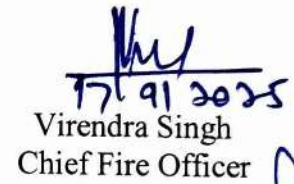 17/9/2025
Virendra Singh
Chief Fire Officer